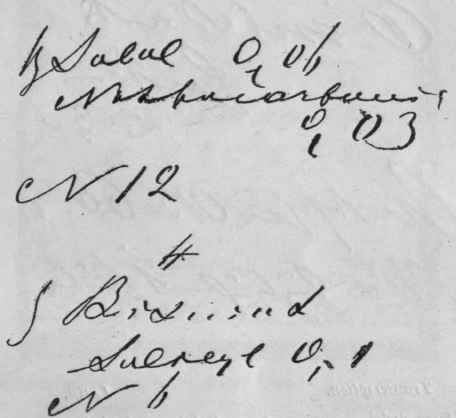 Salol 0,06
Natr bicarbonici
0,03
N 12
#
Bismuth
Salicyl 0,1
N 6